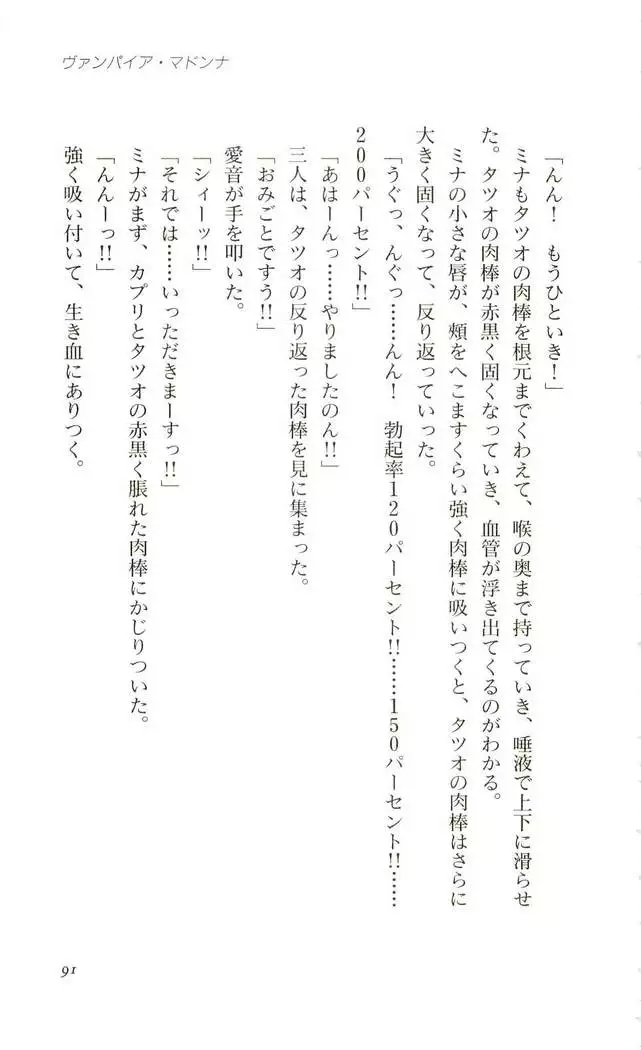 ヴァンパイア・マドンナ
「んん！　もうひといき！」
ミナもタツオの肉棒を根元までくわえて、喉の奥まで持っていき、唾液で上下に滑らせ
た。タツオの肉棒が赤黒く固くなっていき、血管が浮き出てくるのがわかる。
ミナの小さな唇が、頰をへこますくらい強く肉棒に吸いつくと、タツオの肉棒はさらに
大きく固くなって、反り返っていった。
「うぐっ、んぐっ……んん！　勃起率120パーセント!!……150パーセント!!……
200パーセント!!」
「あはーんっ……やりましたのん!!」
三人は、タツオの反り返った肉棒を見に集まった。
「おみごとですう!!」
愛音が手を叩いた。
「シィーッ!!」
「それでは……いっただきまーすっ!!」
ミナがまず、カプリとタツオの赤黒く脹れた肉棒にかじりついた。
「んんーっ!!」
強く吸い付いて、生き血にありつく。
91